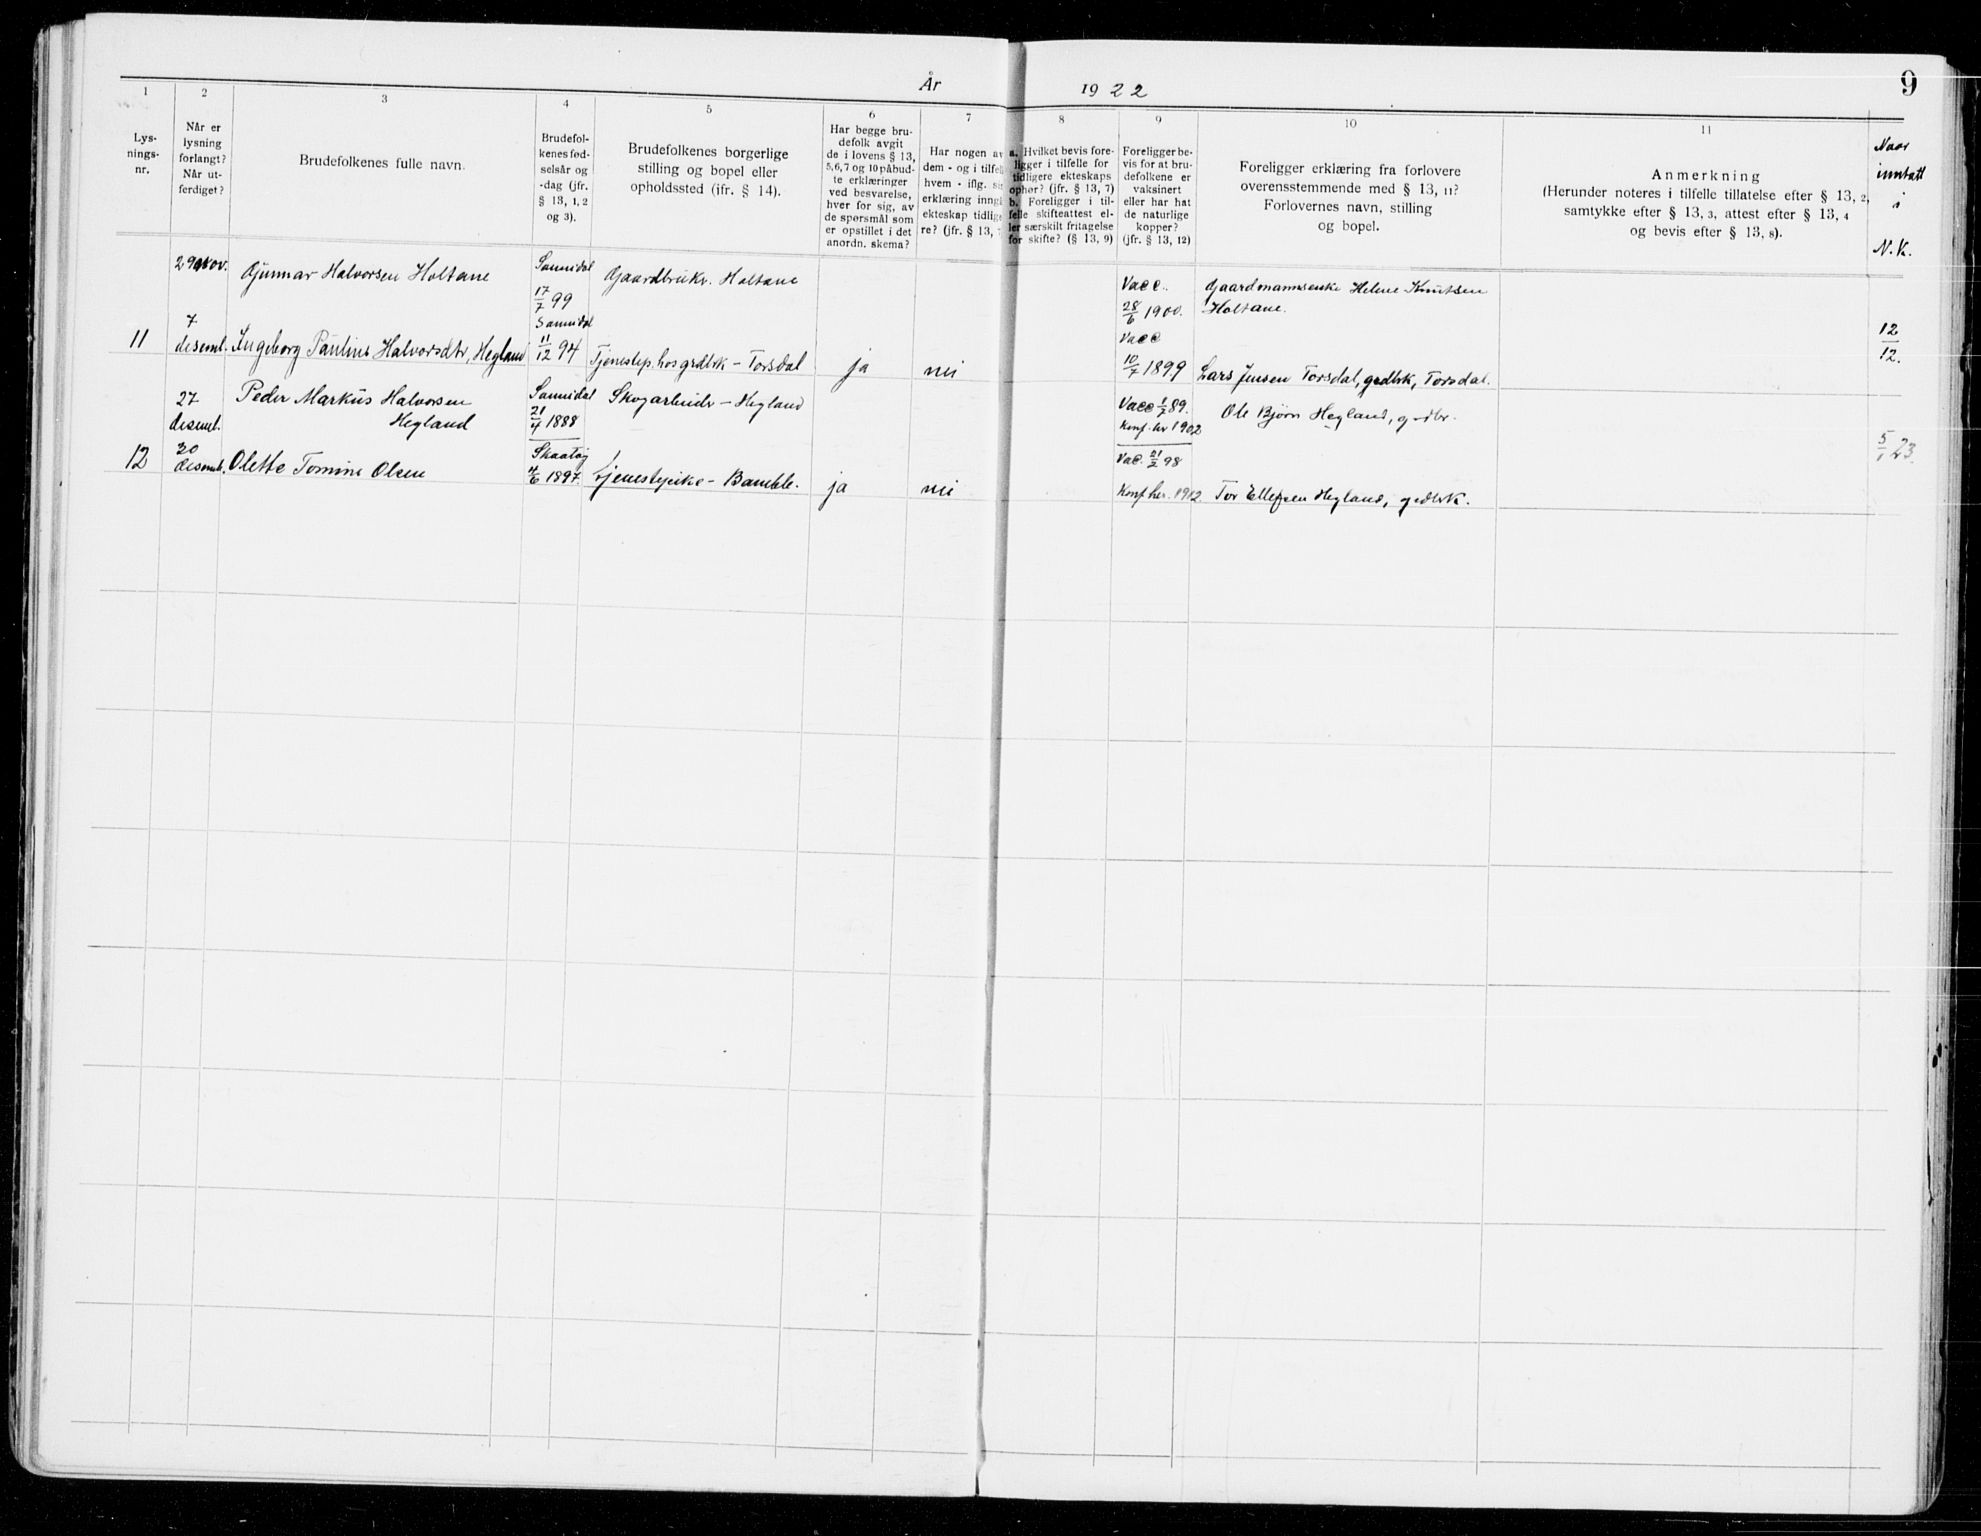 År 1922
9
1
2
3
4
5
6
7
8
9
10
11
Lys-
nings-
nr.
Når er
lysning
forlangt?
Når ut-
ferdiget?
Brudefolkenes fulle navn.
Brudefol-
kenes fød-
selsår og
-dag (jfr.
§ 13, 1, 2
og 3).
Brudefolkenes borgerlige
stilling og bopel eller
opholdssted (ifr. § 14).
Har begge bru-
defolk avgit
de i lovens § 13,
5,6,7 og 10 påbud-
te erklæringer
ved besvarelse,
hver for sig, av
de spørsmål som
er opstillet i det
anordn. skema?
Har nogen av
dem - og i tilfel
hvem - iflg.
erklæring inng
ekteskap tidlig
re? (jfr. § 13, 7
a. Hvilket bevis fore-
ligger i tilfelle for
tidligere ekteskaps
ophør? (jfr. § 13, 7)
b. Foreligger i til-
felle skifteattest el-
ler særskilt fritagelse
for skifte? (§ 13, 9)
Foreligger be-
vis for at bru-
defolkene er
vaksinert
eller har hat
de naturlige
kopper?
(jfr. § 13, 12)
Foreligger erklæring fra forlovere
overensstemmende med § 13, 11?
Forlovernes navn, stilling
og bopel.
Anmerkning
(Herunder noteres i tilfelle tillatelse efter § 13, 2,
samtykke efter § 13, 3, attest efter § 13, 4
og bevis efter § 13, 8).
Naar
inntatt
i
N.K.
29 nov.
Gunnar Halvorsen Holtane
Sannidal
17/7 99
Gaardbruker. Holtane
Vacc.
28/6 1900.
Gaardmannsenke Helene Knutsen
Holtane.
11
7
desembl.
Ingeborg Pauline Halvorsdtr, Hegland
Sannidal
11/12 94
Tjenestep. hos grdbrk – Torsdal
ja
nei
Vacc
10/7 1899
Lars Jensen Torsdal, grdbrk, Torsdal.
12/12.
27
desembl.
Peder Markus Halvorsen
Hegland
Sannidal
21/4 1888
Skogarbeider – Hegland
Vacc 1/2 89.
Konf. her 1902
Ole Bjørn Hegland, grdbr.
12
30
desembl.
Olette Tomine Olsen
Skaatøy
4/6 1897.
Tjenestepike – Bamble.
ja
nei
Vac. 21/2 98
Konf. her. 1912
Tor Ellefsen Hegland, grdbrk.
5/1 23.